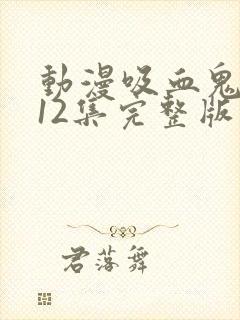 動漫吸血鬼
12集完整版
君落舞